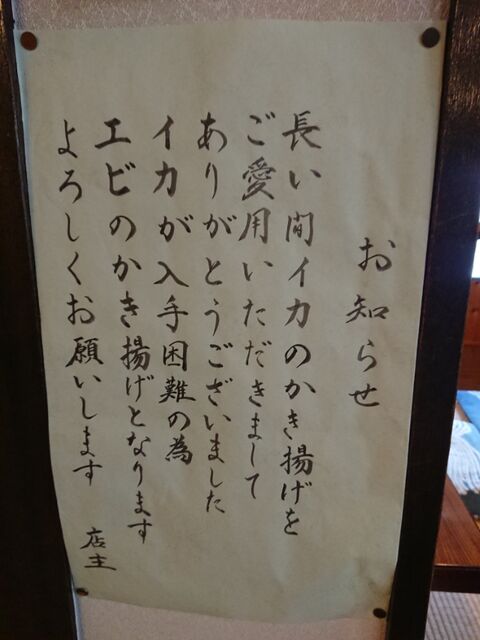 お知らせ
長い間イカのかき揚げを
ご愛用いただきまして
ありがとうございました
イカが入手困難の為
エビのかき揚げとなります
よろしくお願いします
店主